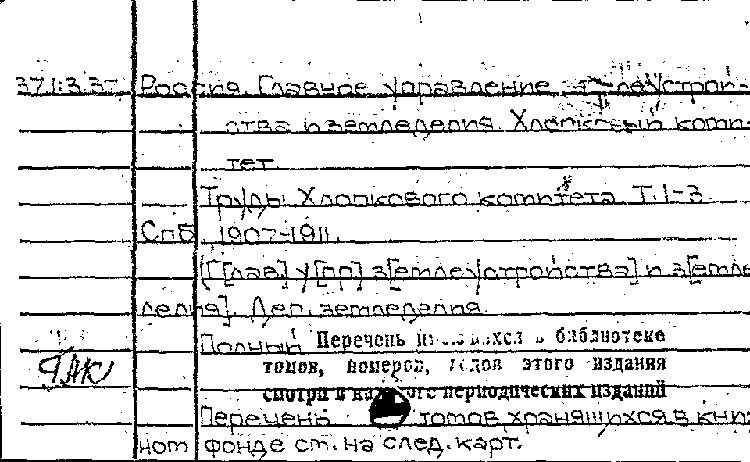 Россия. Главное управление землеустрой-
ства и земледелия. Хлопковый коми-
тет
Труды Хлопкового комитета. Т. 1-3
Спб 1907-1911.
(Г[лав] у[пр] з[емлеустройства] и з[емле
делия]. Деп. земледелия.
Полный
Перечень имеющихся в библиотеке
томов, номеров, годов этого издания
смотри в каталоге периодических изданий
Перечень томов хранящихся в книж
ном фонде см. на след. карт.